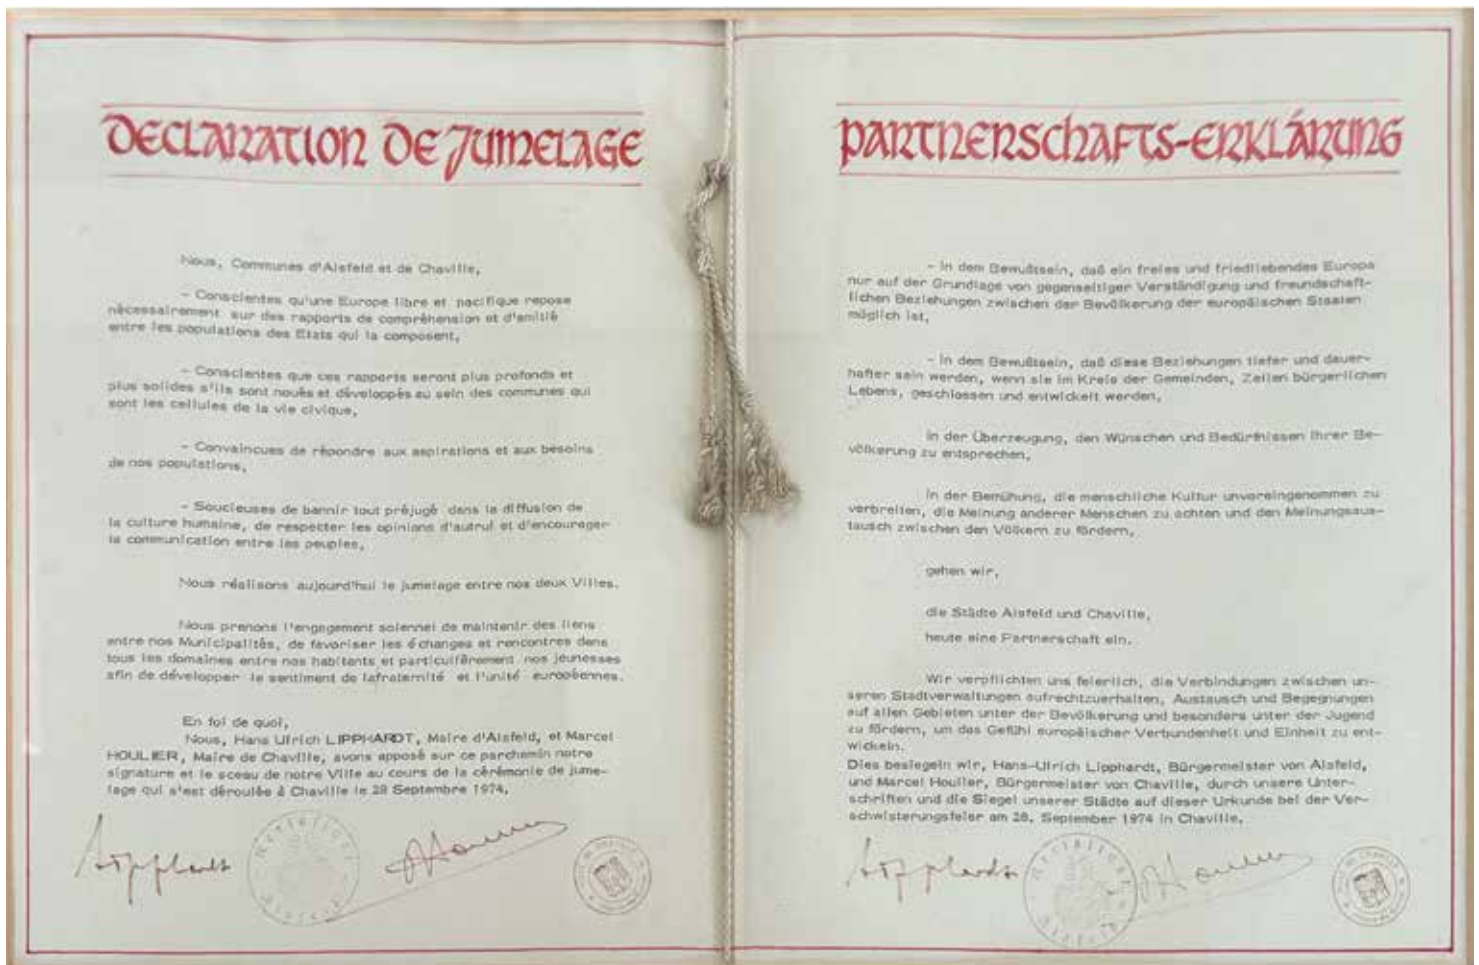 DECLARATION DE JUMELAGE
Nous, Communes d'Alsfeld et de Chaville,
- Conscientes qu'une Europe libre et pacifique repose
nécessairement sur des rapports de compréhension et d'amitié
entre les populations des Etats qui la composent,
- Conscientes que ces rapports seront plus profonds et
plus solides s'ils sont noués et développés au sein des communes qui
sont les cellules de la vie civique,
- Convaincues de répondre aux aspirations et aux besoins
de nos populations,
- Soucieuses de bannir tout préjugé dans la diffusion de
la culture humaine, de respecter les opinions d'autrui et d'encourager
la communication entre les peuples,
Nous réalisons aujourd'hui le jumelage entre nos deux Villes.
Nous prenons l'engagement solennel de maintenir des liens
entre nos Municipalités, de favoriser les échanges et rencontres dans
tous les domaines entre nos habitants et particulièrement nos jeunesses
afin de développer le sentiment de lafraternité et l'unité européennes.
En foi de quoi,
Nous, Hans Ulrich LIPPHARDT, Maire d'Alsfeld, et Marcel
HOULIER, Maire de Chaville, avons apposé sur ce parchemin notre
signature et le sceau de notre Ville au cours de la cérémonie de jume-
lage qui s'est déroulée à Chaville le 28 Septembre 1974,
PARTNERSCHAFTS-ERKLÄRUNG
- In dem Bewußtsein, daß ein freies und friedliebendes Europa
nur auf der Grundlage von gegenseitiger Verständigung und freundschaft-
lichen Beziehungen zwischen der Bevölkerung der europäischen Staaten
möglich ist,
- In dem Bewußtsein, daß diese Beziehungen tiefer und dauer-
hafter sein werden, wenn sie im Kreis der Gemeinden, Zellen bürgerlichen
Lebens, geschlossen und entwickelt werden,
In der Überzeugung, den Wünschen und Bedürfnissen ihrer Be-
völkerung zu entsprechen,
In der Bemühung, die menschliche Kultur unvoreingenommen zu
verbreiten, die Meinung anderer Menschen zu achten und den Meinungsaus-
tausch zwischen den Völkern zu fördern,
gehen wir,
die Städte Alsfeld und Chaville,
heute eine Partnerschaft ein.
Wir verpflichten uns feierlich, die Verbindungen zwischen un-
seren Stadtverwaltungen aufrechtzuerhalten, Austausch und Begegnungen
auf allen Gebieten unter der Bevölkerung und besonders unter der Jugend
zu fördern, um das Gefühl europäischer Verbundenheit und Einheit zu ent-
wickeln.
Dies besiegeln wir, Hans-Ulrich Lipphardt, Bürgermeister von Alsfeld,
und Marcel Houlier, Bürgermeister von Chaville, durch unsere Unter-
schriften und die Siegel unserer Städte auf dieser Urkunde bei der Ver-
schwisterungsfeier am 28. September 1974 in Chaville.